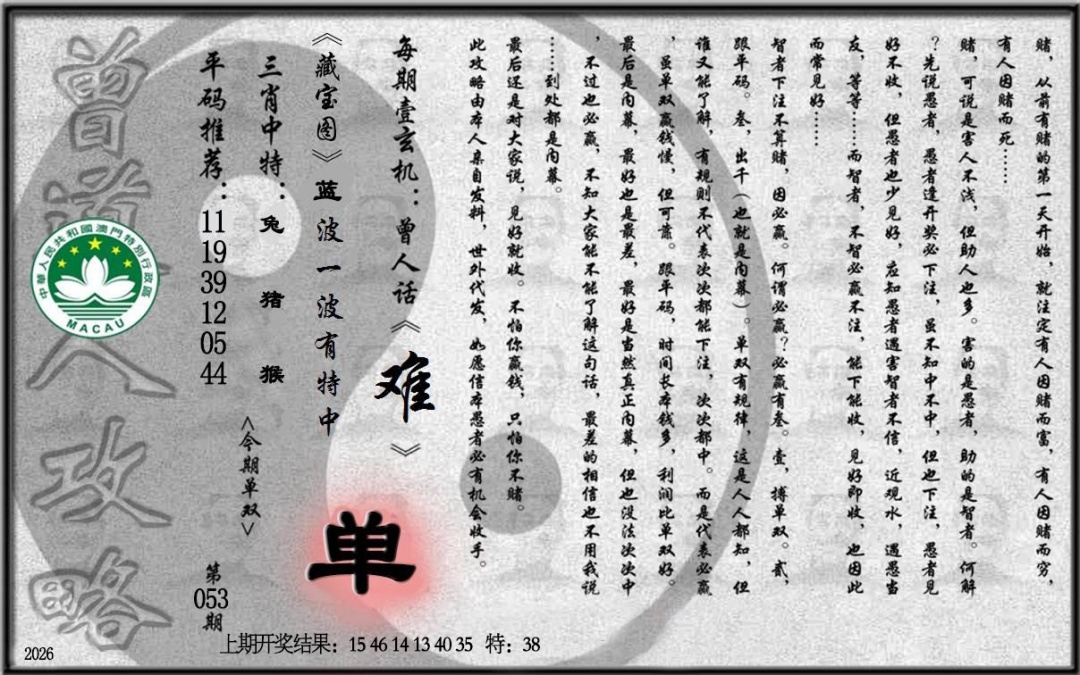 赌，从前有赌的第一天开始，就注定有人因赌而富，有人因赌而穷，
有人因赌而死……
赌，可说是害人不浅，但助人也多。害的是愚者，助的是智者。何解
？先说愚者，愚者逢开奖必下注，虽不知中不中，但也下注，愚者见
好不收，但愚者也少见好，应知愚者遇害智者不信，近观水，遇愚当
友，等等……而智者，不智必赢不注，能下能收，见好即收，也因此
而常见好……
智者下注不算赌，因必赢。何谓必赢？必赢有叁。壹，搏单双。贰，
跟平码。叁，出千（也就是内幕）。单双有规律，这是人人都知，但
谁又能了解，有规则不代表次次都能下注，次次都中。而是代表必赢
，虽单双赢钱慢，但可靠。跟平码，时间长本钱多，利润比单双好。
最后是内幕，最好也是最差，最好是当然真正内幕，但也没法次次中
，不过也必赢，不知大家能不能了解这句话，最差的相信也不用我说
……到处都是内幕。
最后还是对大家说，见好就收。不怕你赢钱，只怕你不赌。
此攻略由本人亲自发料，世外代发，如愿信本愚者必有机会收手。
每期壹玄机：曾人话《难》
《藏宝图》蓝波一波有特中
单
三肖中特：兔猪猴
<今期单双>
平码推荐：11 19 39 12 05 44
第053期
曾道人攻略
中華人民共和國澳門特別行政區
MACAU
上期开奖结果：15 46 14 13 40 35 特：38
2026